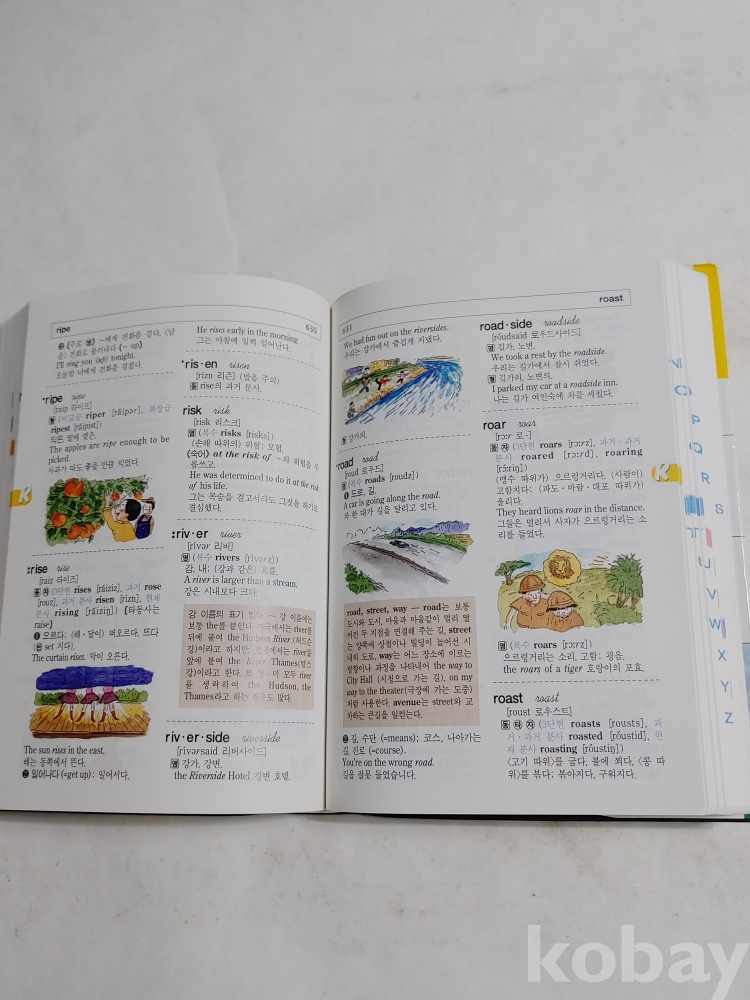 ripe
630
㉰ (주로 영) ~에게 전화를 걸다, (남
을) 전화로 불러내다 (~ up)
I'll ring you (up) tonight.
오늘밤 너에게 전화를 걸겠다.
*ripe ripe
[raip 라이프]
형 (비교급 riper [ráipər], 최상급
ripest [ráipist])
익은, 꽃에 맺은.
The apples are ripe enough to be
picked.
사과가 따도 좋을 만큼 익었다.
K
:rise rise
[raiz 라이즈]
동 자 (3단현 rises [ráiziz], 과거 rose
[rouz], 과거 분사 risen [rízn], 현재
분사 rising [ráiziŋ]) (타동사는
raise)
❶ 오르다; (해·달이) 떠오르다, 뜨다
(반 set 지다).
The curtain rises. 막이 오른다.
The sun rises in the east.
해는 동쪽에서 뜬다.
❷ 일어나다 (=get up); 일어서다.
He rises early in the morning
그는 아침에 일찍 일어난다.
*ris·en risen
[rízn 리즌] (발음 주의)
동 rise의 과거 분사.
risk risk
[risk 리스크]
명 (복수 risks [risks])
(손해 따위의) 위험; 모험.
(숙어) at the risk of ~의 위험을 무
릅쓰고.
He was determined to do it at the risk
of his life.
그는 목숨을 걸고서라도 그것을 하기로
결심했다.
:riv·er river
[rívər 리버]
명 (복수 rivers [rívərz])
강, 내; (강과 같은) 흐름.
A river is larger than a stream.
강은 시내보다 크다.
강 이름의 표기 방식 — 강 이름에는
보통 the를 붙인다. 미국에서는 river를
뒤에 붙여 the Hudson River (허드슨
강)이라고 하지만 영국에서는 river를
앞에 붙여 the River Thames(템스
강)이라고 한다. 또 영·미 모두 river
를 생략하여 the Hudson, the
Thames라고 하는 경우도 많다.
riv·er·side riverside
[rívərsaid 리버사이드]
명 강가, 강변.
the Riverside Hotel 강변 호텔.
631
roast
We had fun out on the riversides.
우리는 강가에서 즐겁게 지냈다.
형 강가의.
road road
[roud 로우드]
명 (복수 roads [roudz])
❶ 도로, 길.
A car is going along the road.
차 한 대가 길을 달리고 있다.
road, street, way — road는 보통
도시와 도시, 마을과 마을같이 멀리 떨
어진 두 지점을 연결해 주는 길, street
는 양쪽에 상점이나 빌딩이 늘어선 시
내의 도로, way는 어느 장소에 이르는
방향이나 과정을 나타내어 the way to
City Hall (시청으로 가는 길), on my
way to the theater(극장에 가는 도중)
처럼 사용한다. avenue는 street와 교
차하는 큰길을 일컫는다.
❷ 길, 수단 (=means); 코스, 나아가는
길, 진로 (=course).
You're on the wrong road.
길을 잘못 들었습니다.
road·side roadside
[róudsaid 로우드사이드]
명 길가, 노변.
We took a rest by the roadside.
우리는 길가에서 잠시 쉬었다.
형 길가의, 노변의.
I parked my car at a roadside inn.
나는 길가 여인숙에 차를 세웠다.
roar roar
[rɔːr 로-]
동 자 (3단현 roars [rɔːrz], 과거·과거
분사 roared [rɔːrd], roaring
[rɔ́ːriŋ])
(맹수 따위가) 으르렁거리다, (사람이)
고함치다; (파도·바람·대포 따위가)
울리다.
They heard lions roar in the distance.
그들은 멀리서 사자가 으르렁거리는 소
리를 들었다.
명 (복수 roars [rɔːrz])
으르렁거리는 소리, 고함; 굉음.
the roars of a tiger 호랑이의 포효.
roast roast
[roust 로우스트]
동 타 자 (3단현 roasts [rousts], 과
거·과거 분사 roasted [róustid], 현
재 분사 roasting [róustiŋ])
〈고기 따위〉를 굽다, 불에 쬐다, 〈콩 따
위〉를 볶다; 볶아지다, 구워지다.
R
N
O
P
Q
R
S
T
U
V
W
X
Y
Z
kobay